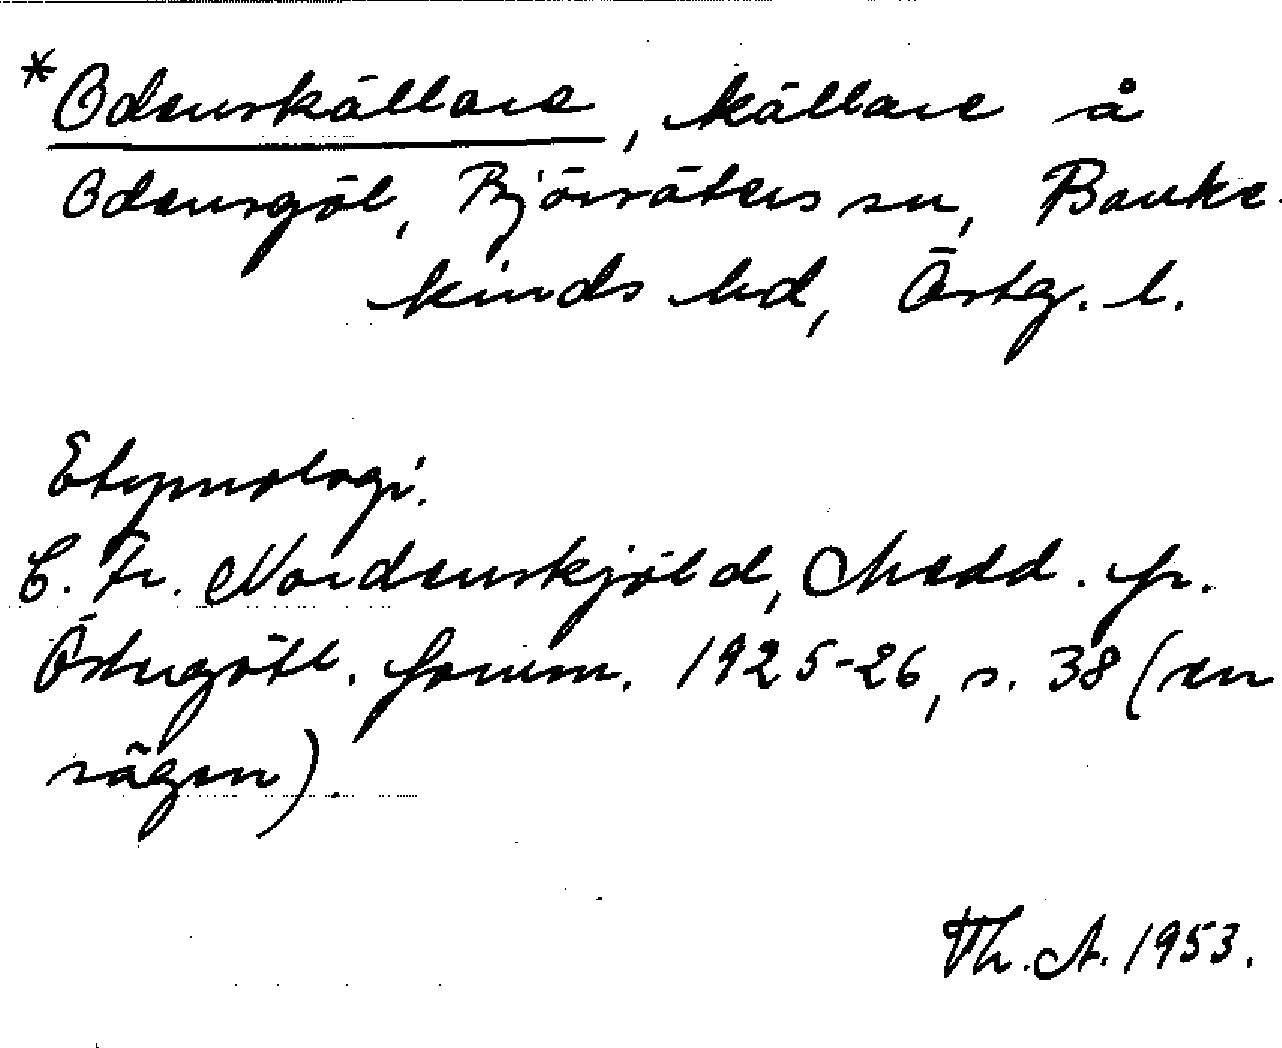 *Odenskällare, källare å
Odensgöl, Björsäters sn, Banke-
kinds hd, Östg. l.
Etymologi.
C. Fr. Nordenskjöld, Medd. fr.
Östergötl. fornm. 1925-26, s. 38 (en
sägen).
Th. A. 1953.